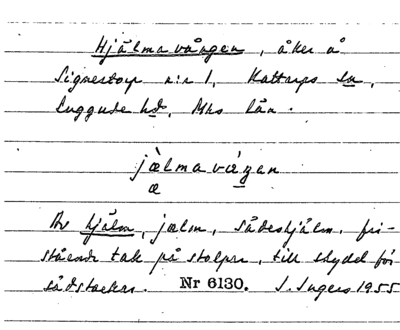 Hjälmavången, åker å
Signestorp n:r 1, Kattarps sn,
Luggude hd, Mhs län.
jælmavåɳen
æ
Av hjälm, jælm, sädeshjälm, fri-
stående tak på stolpar, till skydd för
sädstackar. Nr 6130. J. Ingers 1955